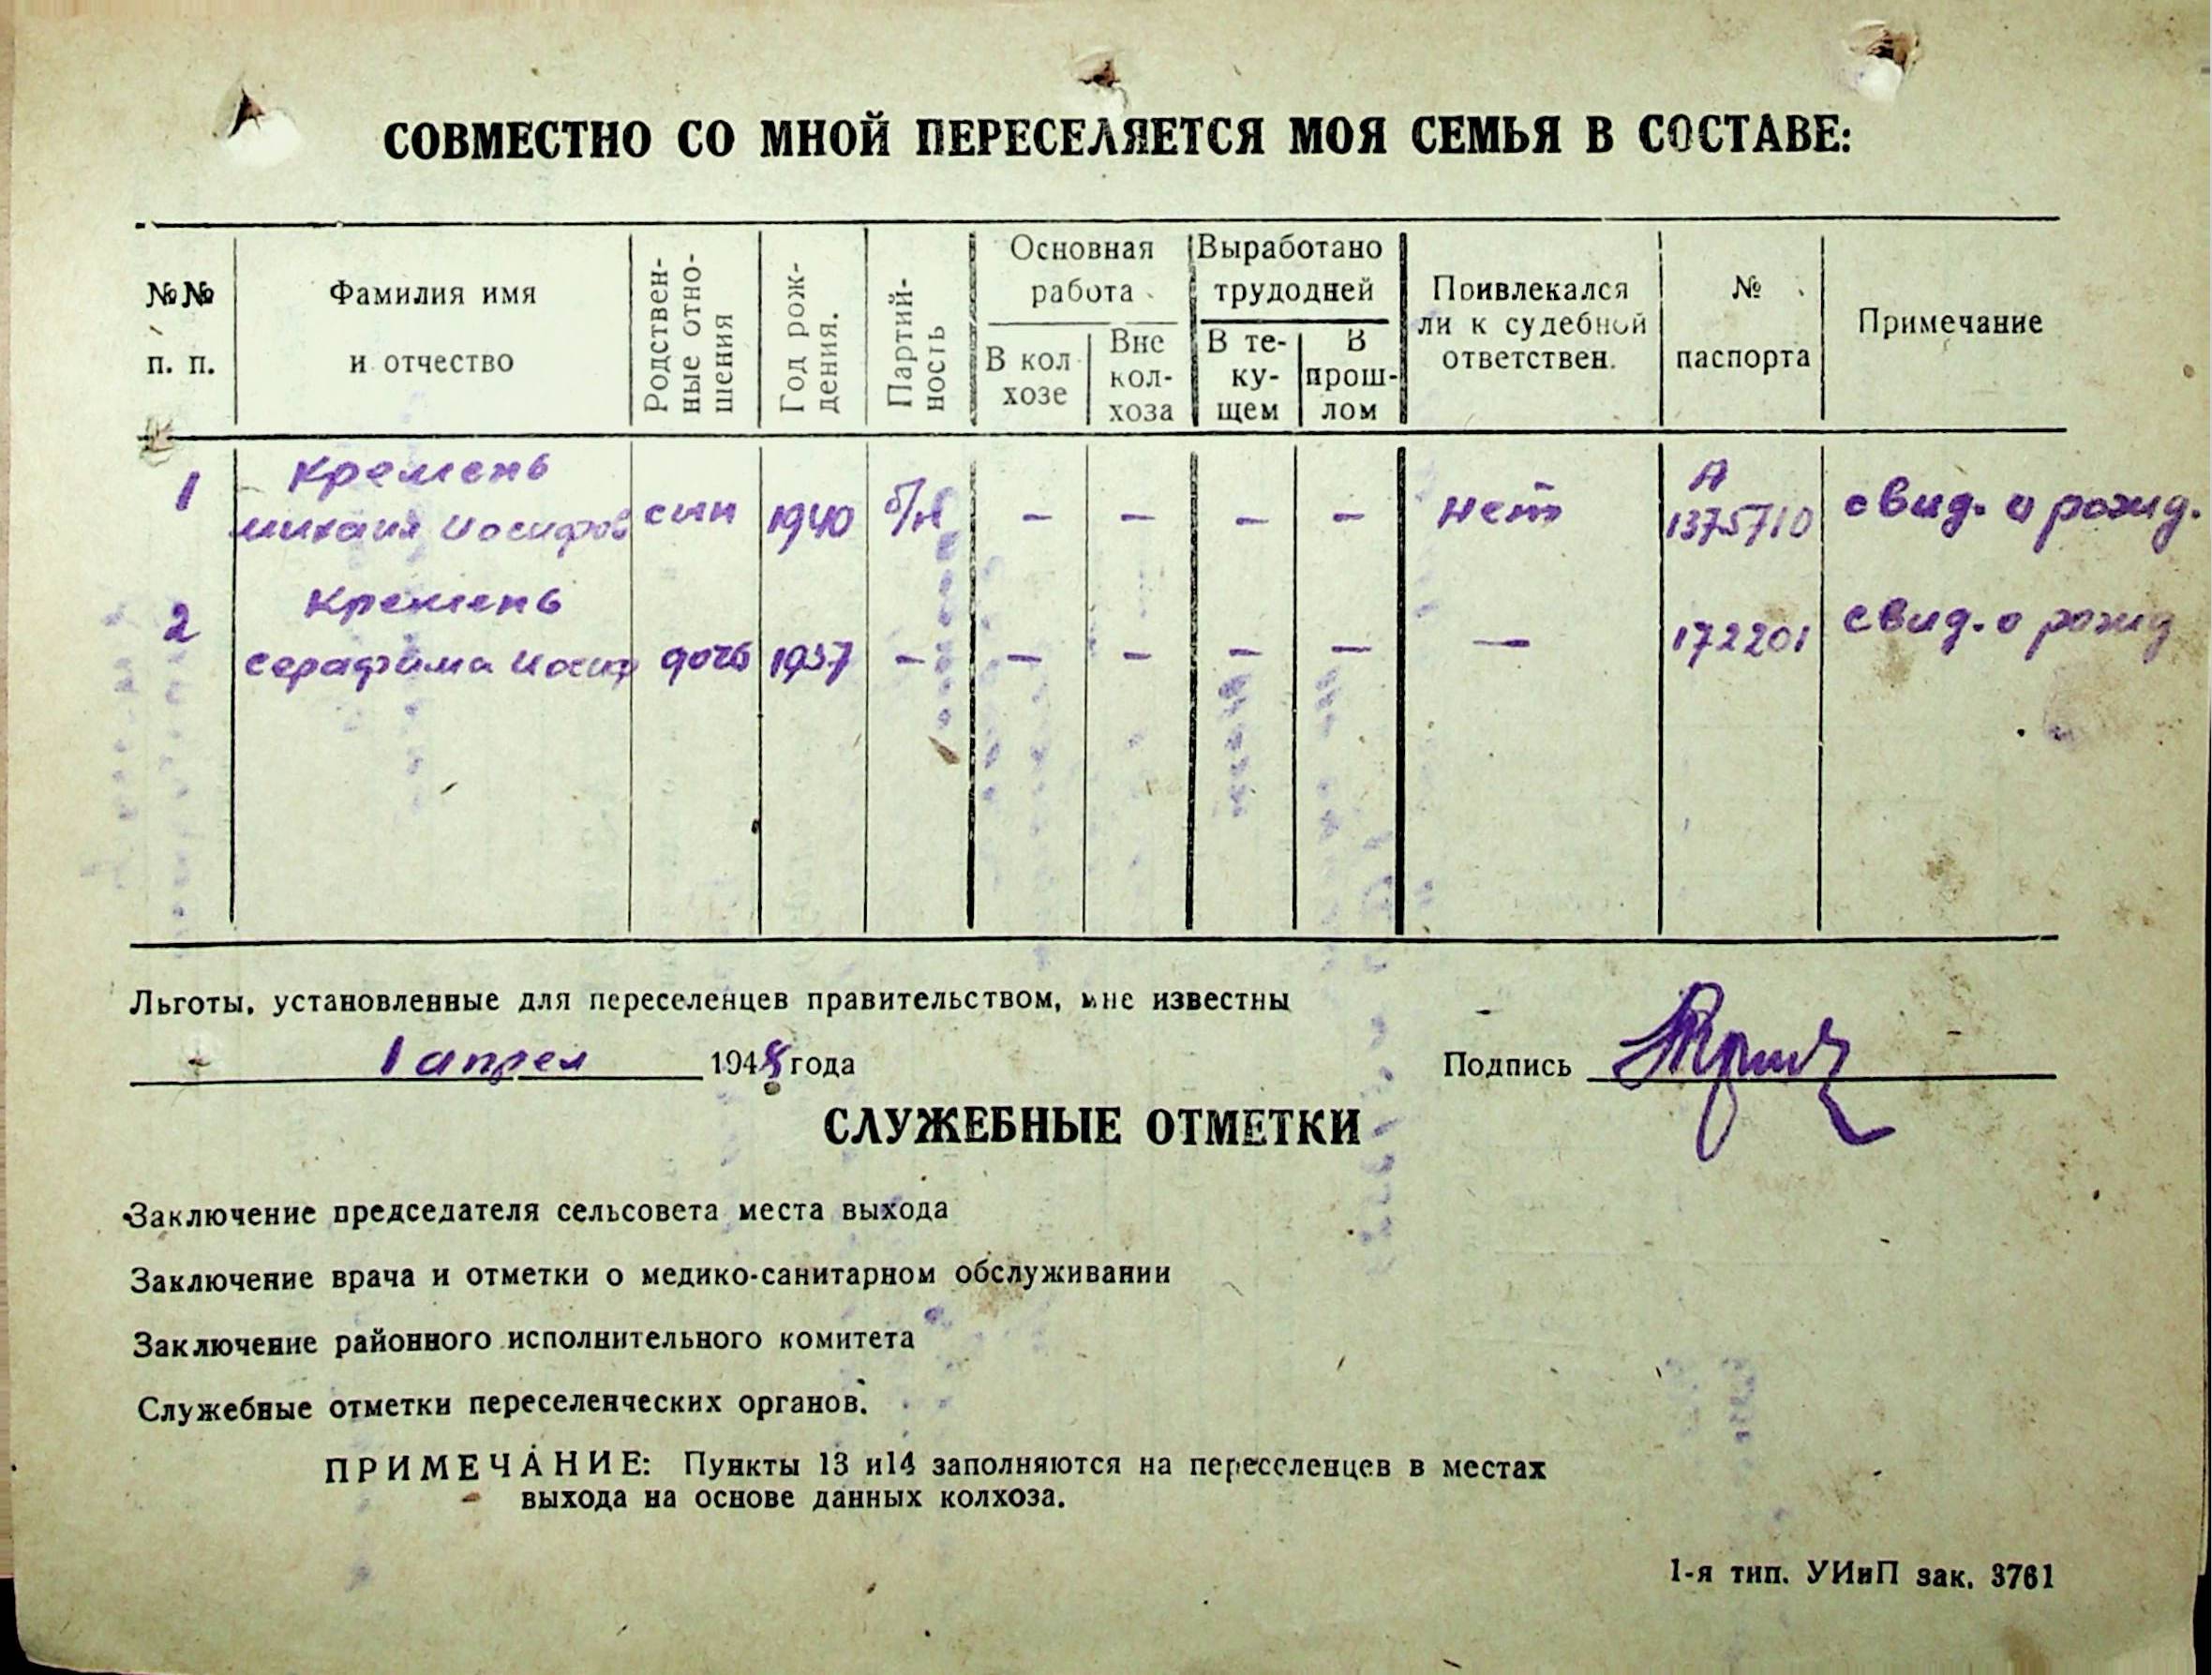 СОВМЕСТНО СО МНОЙ ПЕРЕСЕЛЯЕТСЯ МОЯ СЕМЬЯ В СОСТАВЕ:
№№ п. п.
Фамилия имя и отчество
Родствен-
ные отно-
шения
Год рож-
дения.
Партий-
ность
Основная работа
В кол
хозе
Вне
кол-
хоза
Выработано трудодней
В те-
ку-
щем
В
прош-
лом
Поивлекался
ли к судебной
ответствен.
№
паспорта
Примечание
1 Кремень
михаил Иосифов син 1940 б/п – – – – нет А 1375710 свид. о рожд.
2 Кремень
серафима Иосиф дочь 1937 – – – – – — 172201 свид. о рожд
Льготы, установленные для переселенцев правительством, мне известны
1 апрел 1948 года Подпись
СЛУЖЕБНЫЕ ОТМЕТКИ
Заключение председателя сельсовета места выхода
Заключение врача и отметки о медико-санитарном обслуживании
Заключение районного исполнительного комитета
Служебные отметки переселенческих органов.
ПРИМЕЧАНИЕ: Пункты 13 и14 заполняются на переселенцев в местах
выхода на основе данных колхоза.
1-я тип. УИиП зак. 3761